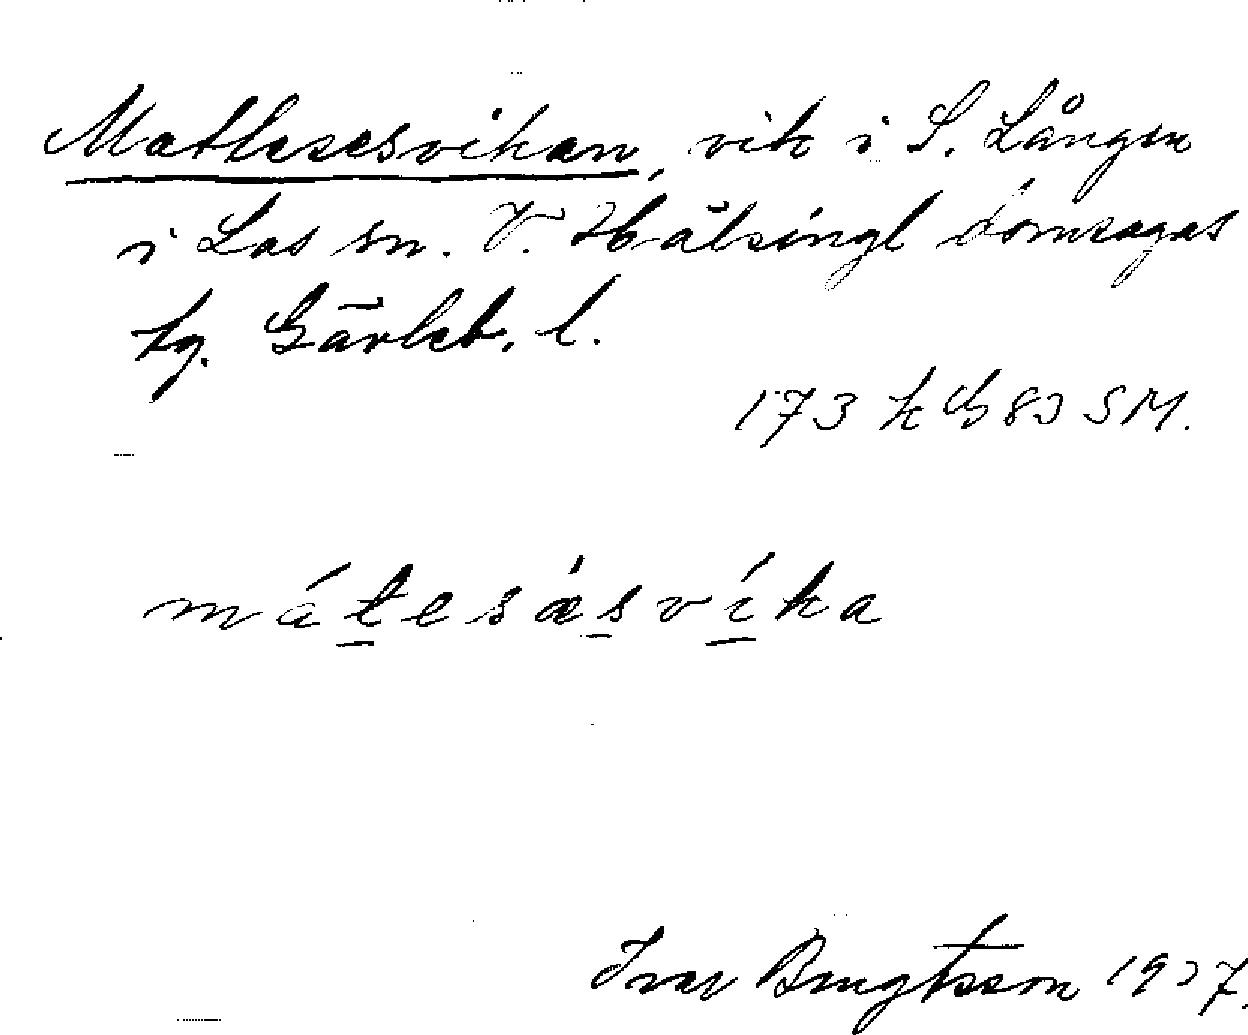 Matlesesvikan, vik i S. Lången
i Los sn. V. Hälsingl domsagas
tg. Gävleb. l.
173 SM.
mátesǽsvíka
Ivar Bengtsson 1927.